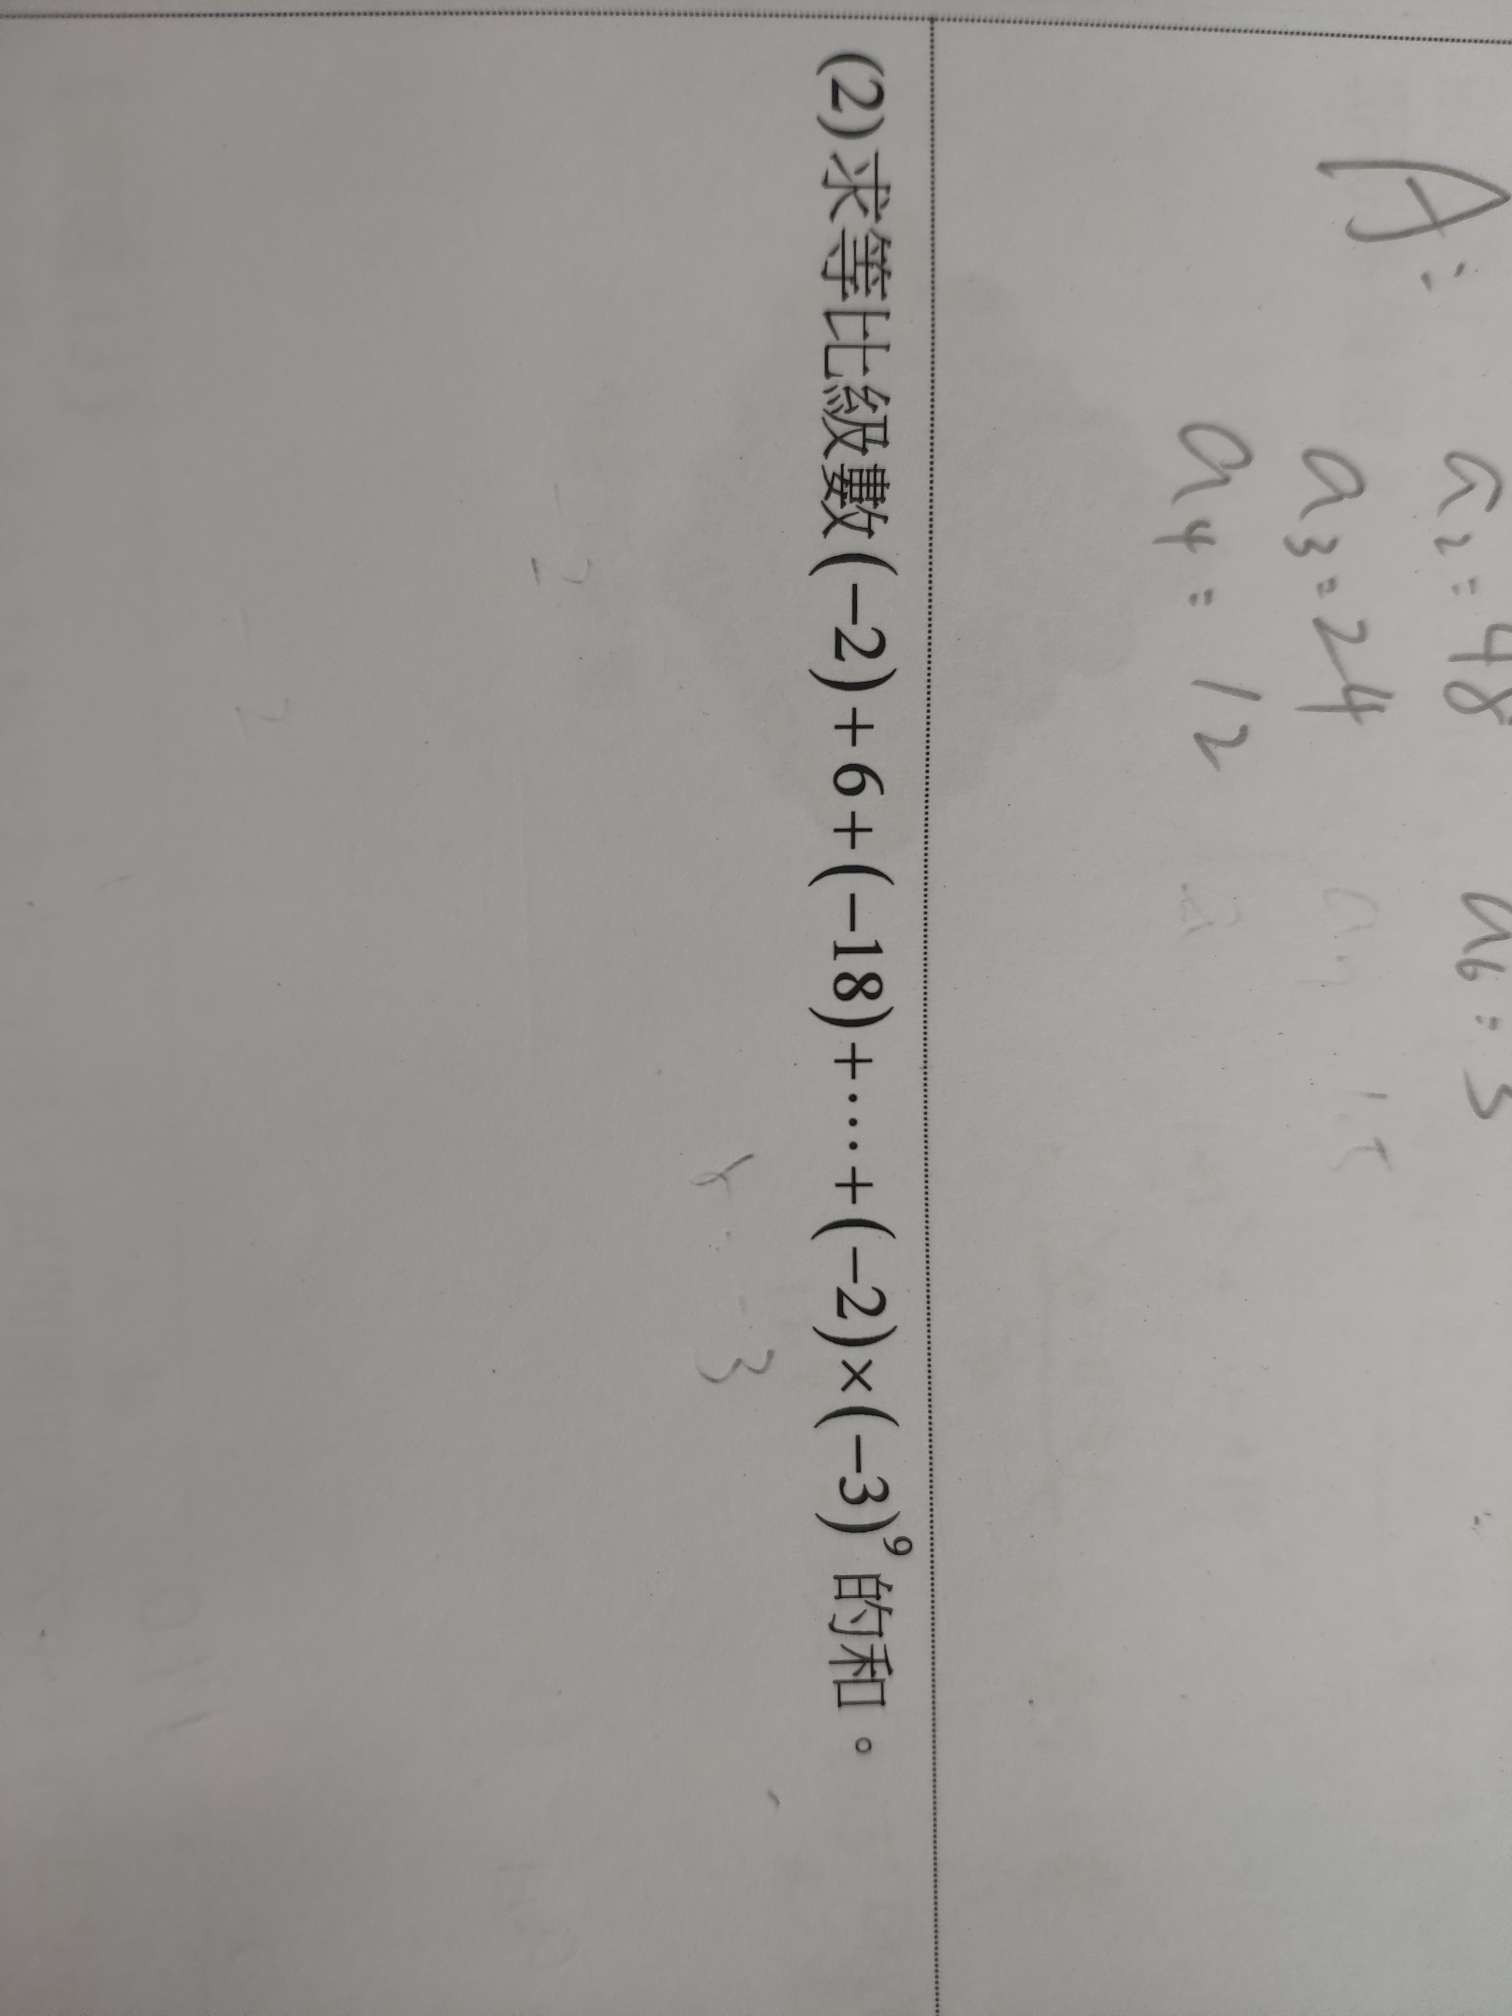 A:
a₂=48 a₆=3
a₃=24
a₄=12
(2)求等比級數(−2)+6+(−18)+⋯+(−2)×(−3)⁹的和。
r=-3